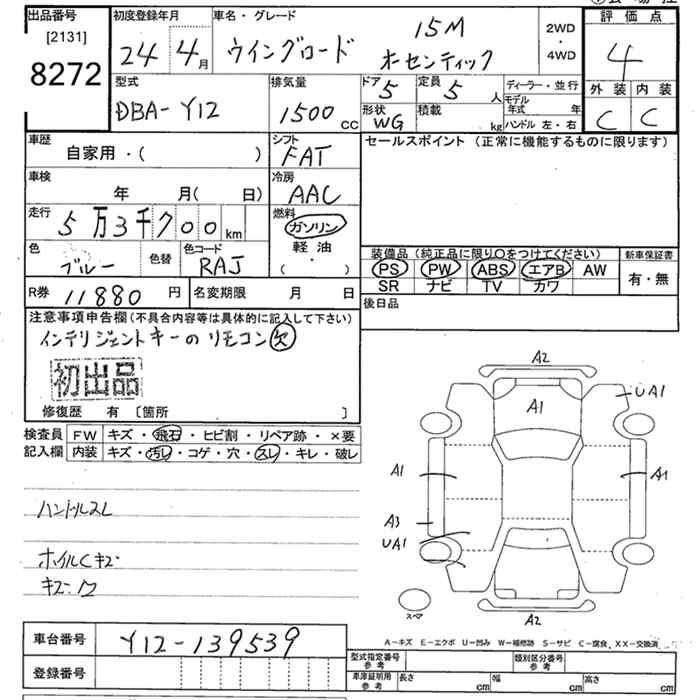 出品番号
[2131]
8272
初度登録年月
24 4月
車名・グレード
15M
ウイングロード オーセンティック
2WD
・
4WD
評価点
4
外装 内装
C C
型式
DBA-Y12
排気量
1500 CC
ドア 5
定員 5 人
形状 WG
積載 kg
ディーラー・並行
モデル年式 年
ハンドル 左・右
車歴
自家用・( )
シフト
FAT
セールスポイント (正常に機能するものに限ります)
車検
年 月( 日)
冷房
AAC
走行
5万3千700km
燃料
ガソリン
軽油
( ・ )
色
ブルー
色替
色コード
RAJ
装備品 (純正品に限り○をつけてください)
PS PW ABS エアB AW
SR ナビ TV カワ
新車保証書
有・無
R券 11880 円
名変期限 月 日
後日品
注意事項申告欄(不具合内容等は具体的に記入して下さい)
インテリジェントキーのリモコン欠
初出品
修復歴 有 〔箇所 〕
検査員
記入欄
FW キズ・飛石・ヒビ割・リペア跡・×要
内装 キズ・汚レ・コゲ・穴・スレ・キレ・破レ
ハンドルスレ
ホイルCキズ
A2
UA1
A1
A1
A1
A3
UA1
スペア
A2
A-キズ E-エクボ U-凹み W-補修跡 S-サビ C-腐食、XX-交換済
車台番号 Y12-139539
登録番号
型式指定番号
参考
類別区分番号
参考
車庫証明用
参考
長さ cm 幅 cm 高さ cm